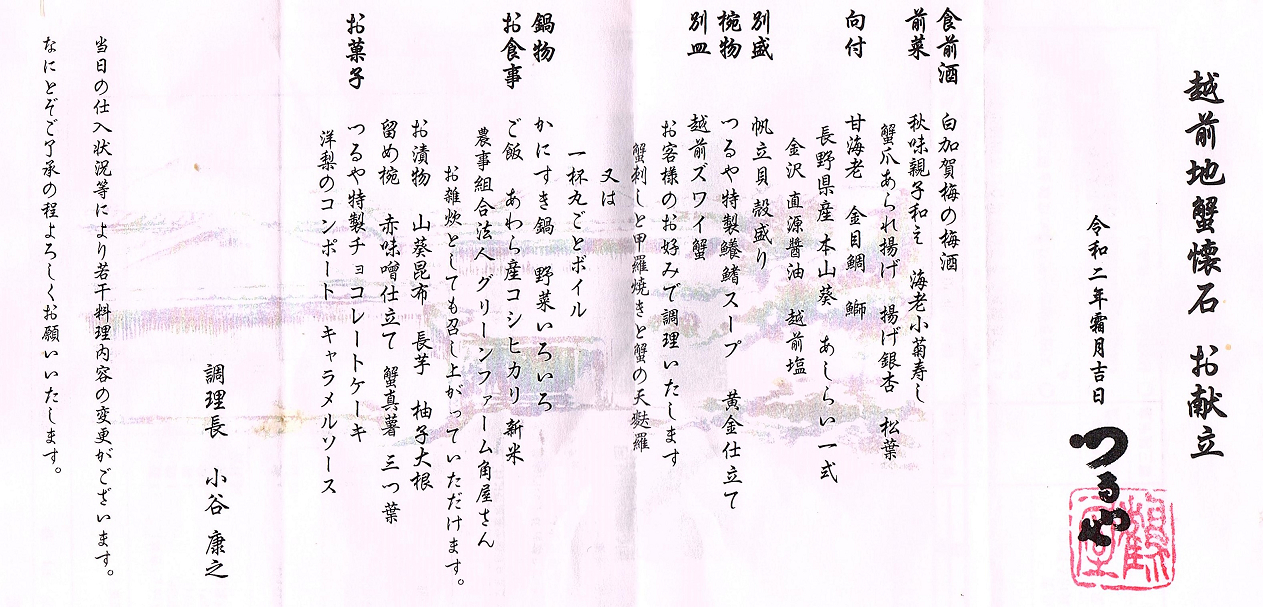 越前地蟹懐石 お献立
令和二年霜月吉日
つるや
鶴屋
食前酒 白加賀梅の梅酒
前菜 秋味親子和え 海老小菊寿し
蟹爪あられ揚げ 揚げ銀杏 松葉
向付 甘海老 金目鯛 鰤
長野県産本山葵 あしらい一式
金沢 直源醤油 越前塩
別盛 帆立貝 殻盛り
椀物 つるや特製鱶鰭スープ 黄金仕立て
別皿 越前ズワイ蟹
お客様のお好みで調理いたします
蟹刺しと甲羅焼きと蟹の天麩羅
又は
一杯丸ごとボイル
鍋物 かにすき鍋 野菜いろいろ
お食事 ご飯 あわら産コシヒカリ 新米
農事組合法人グリーンファーム角屋さん
お雑炊としても召し上がっていただけます。
お漬物 山葵昆布 長芋 柚子大根
留め椀 赤味噌仕立て 蟹真薯 三つ葉
お菓子 つるや特製チョコレートケーキ
洋梨のコンポート キャラメルソース
調理長 小谷 康之
当日の仕入状況等により若干料理内容の変更がございます。
なにとぞご了承の程よろしくお願いいたします。